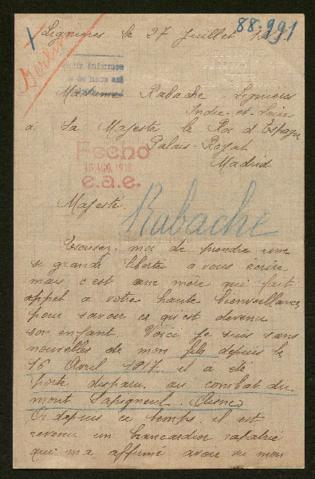 Lignières le 27 Juillet
88-991
Berlin
Madame Rabache Lignières
Indre-et-Loire
à Sa Majesté le Roi d'Espagne
Palais-Royal
Madrid
Fecho
e.a.e.
Majesté
Rubache
Excusez-moi de prendre une
si grande liberté a vous écrire
mais c'est une mère qui fait
appel a votre haute bienveillance
pour savoir ce qu'est devenu
son enfant. Voici je suis sans
nouvelles de mon fils depuis le
16 Avril 1917 il a été
porté disparu au combat du
mont Sapigneul (Aisne)
Or depuis ce temps il est
revenu un brancardier rapatrié
qui m'a affirmé avoir vu mon